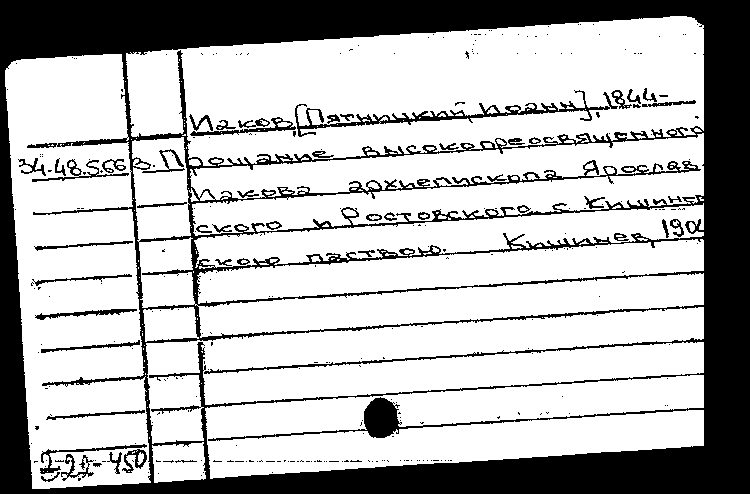 Иаков [Пятницкий Иоанн], 1844-
34.48.5.66 в. Прощание высокопреосвященного
Иакова архиепископа Ярослав-
ского и Ростовского с Кишинев
скою паствою. Кишинев, 190
222-450